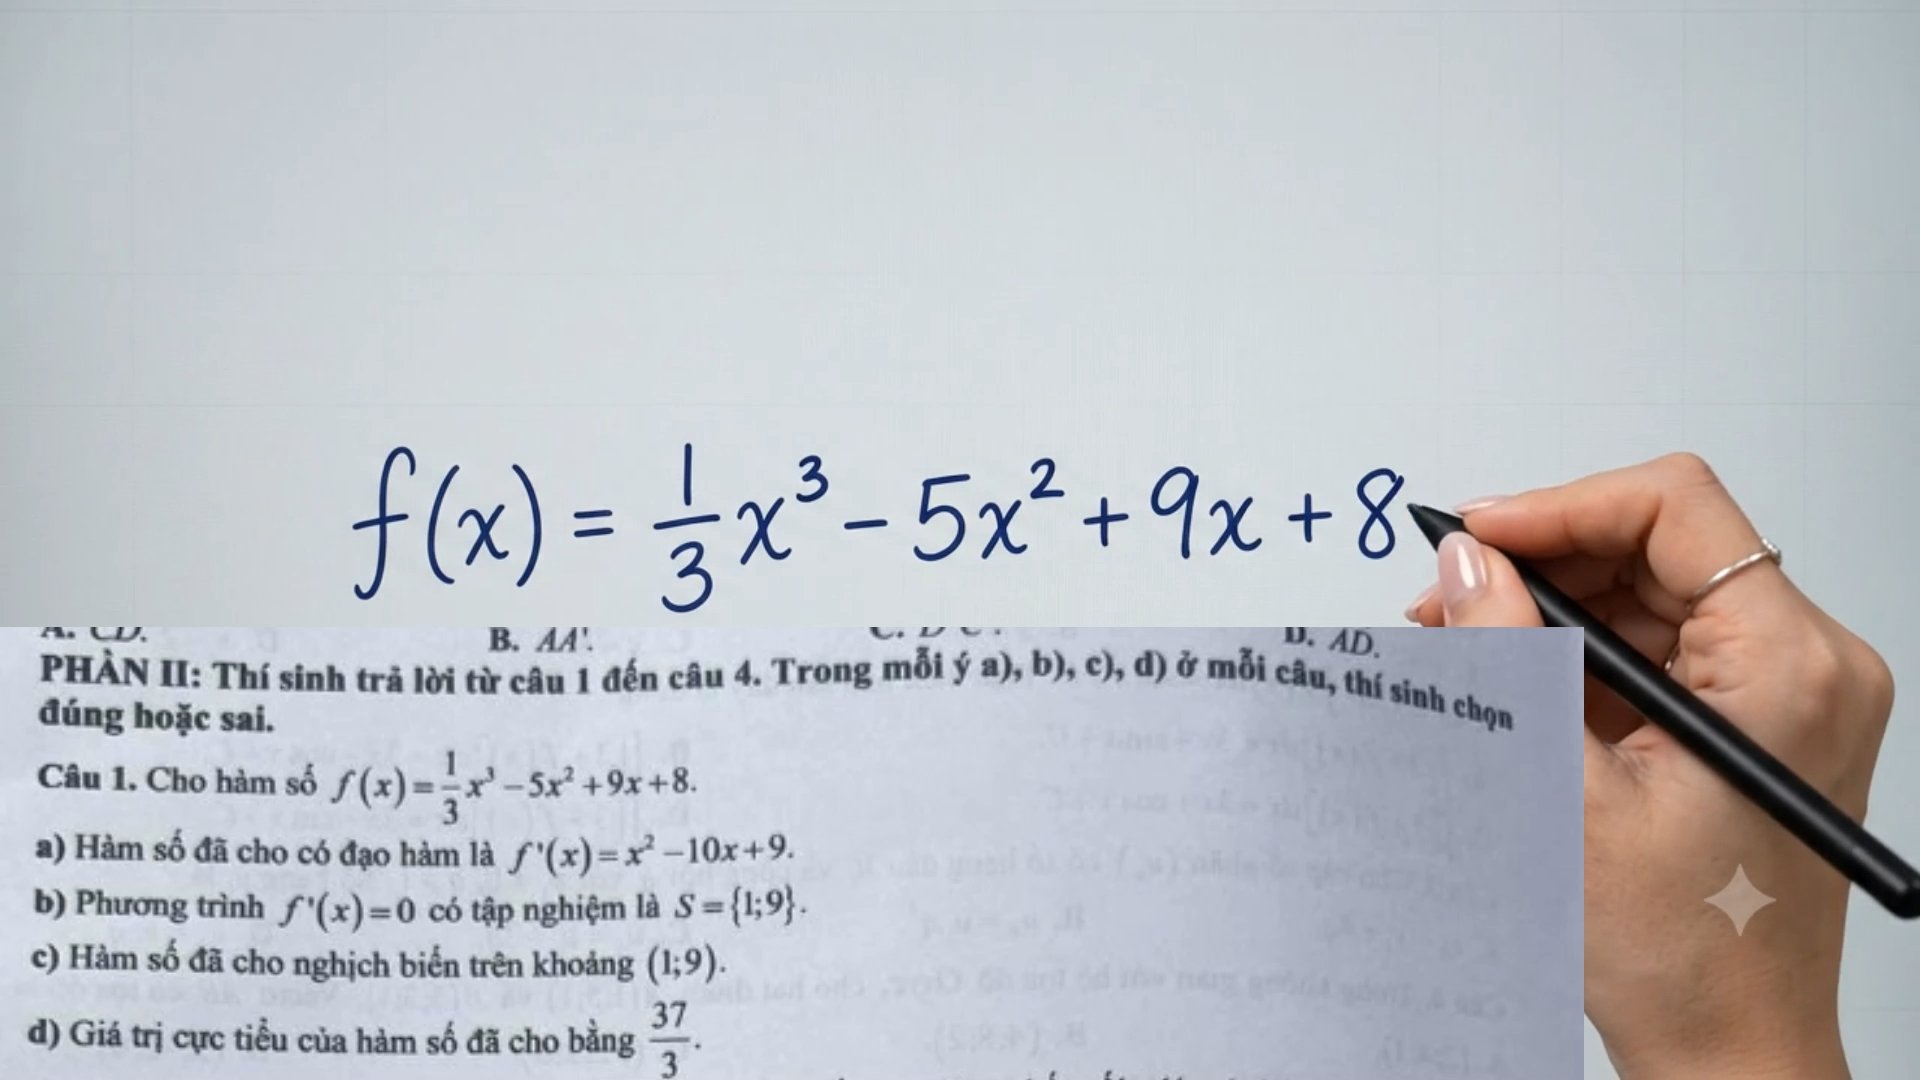 f(x) = 1/3 x³ − 5x² + 9x + 8
B. AA'.
D. AD.
PHẦN II: Thí sinh trả lời từ câu 1 đến câu 4. Trong mỗi ý a), b), c), d) ở mỗi câu, thí sinh chọn
đúng hoặc sai.
Câu 1. Cho hàm số f(x) = 1/3 x³ − 5x² + 9x + 8.
a) Hàm số đã cho có đạo hàm là f'(x) = x² − 10x + 9.
b) Phương trình f'(x) = 0 có tập nghiệm là S = {1;9}.
c) Hàm số đã cho nghịch biến trên khoảng (1;9).
d) Giá trị cực tiểu của hàm số đã cho bằng 37/3.